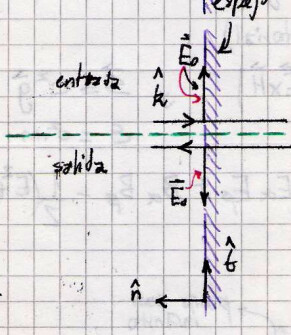 espejo
E₀
entrada
k̂
salida
E₀
t̂
n̂